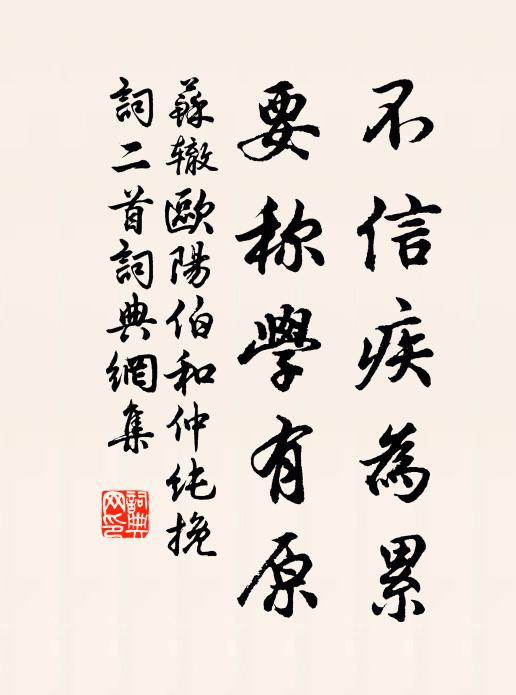 不信疾為累
要称學有原
蘇辙歐陽伯和仲纯挽
詞二首詞典網集
詞典
网印